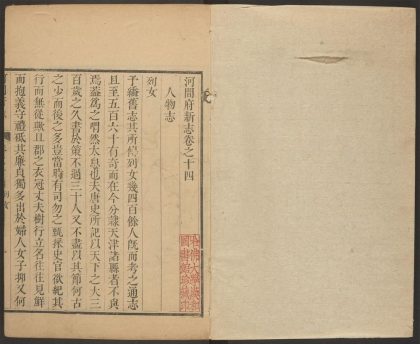 河間府新志卷之十四
人物志
列女
予繙舊志其所傳列女幾四百餘人旣而考之通志
且至五百六十有奇而在今分隸天津諸縣者不與
焉蓋為之喟然太息也夫唐史所記以天下之大三
百歲之久書於策不過三十人又不盡以其節何古
之少而後之多豈當時有司勿之甄採史官欲紀其
行而無從歟且郡之衣冠丈夫樹行立名往往見鮮
而抱義守禮砥其廉貞獨多出於婦人女子抑又何